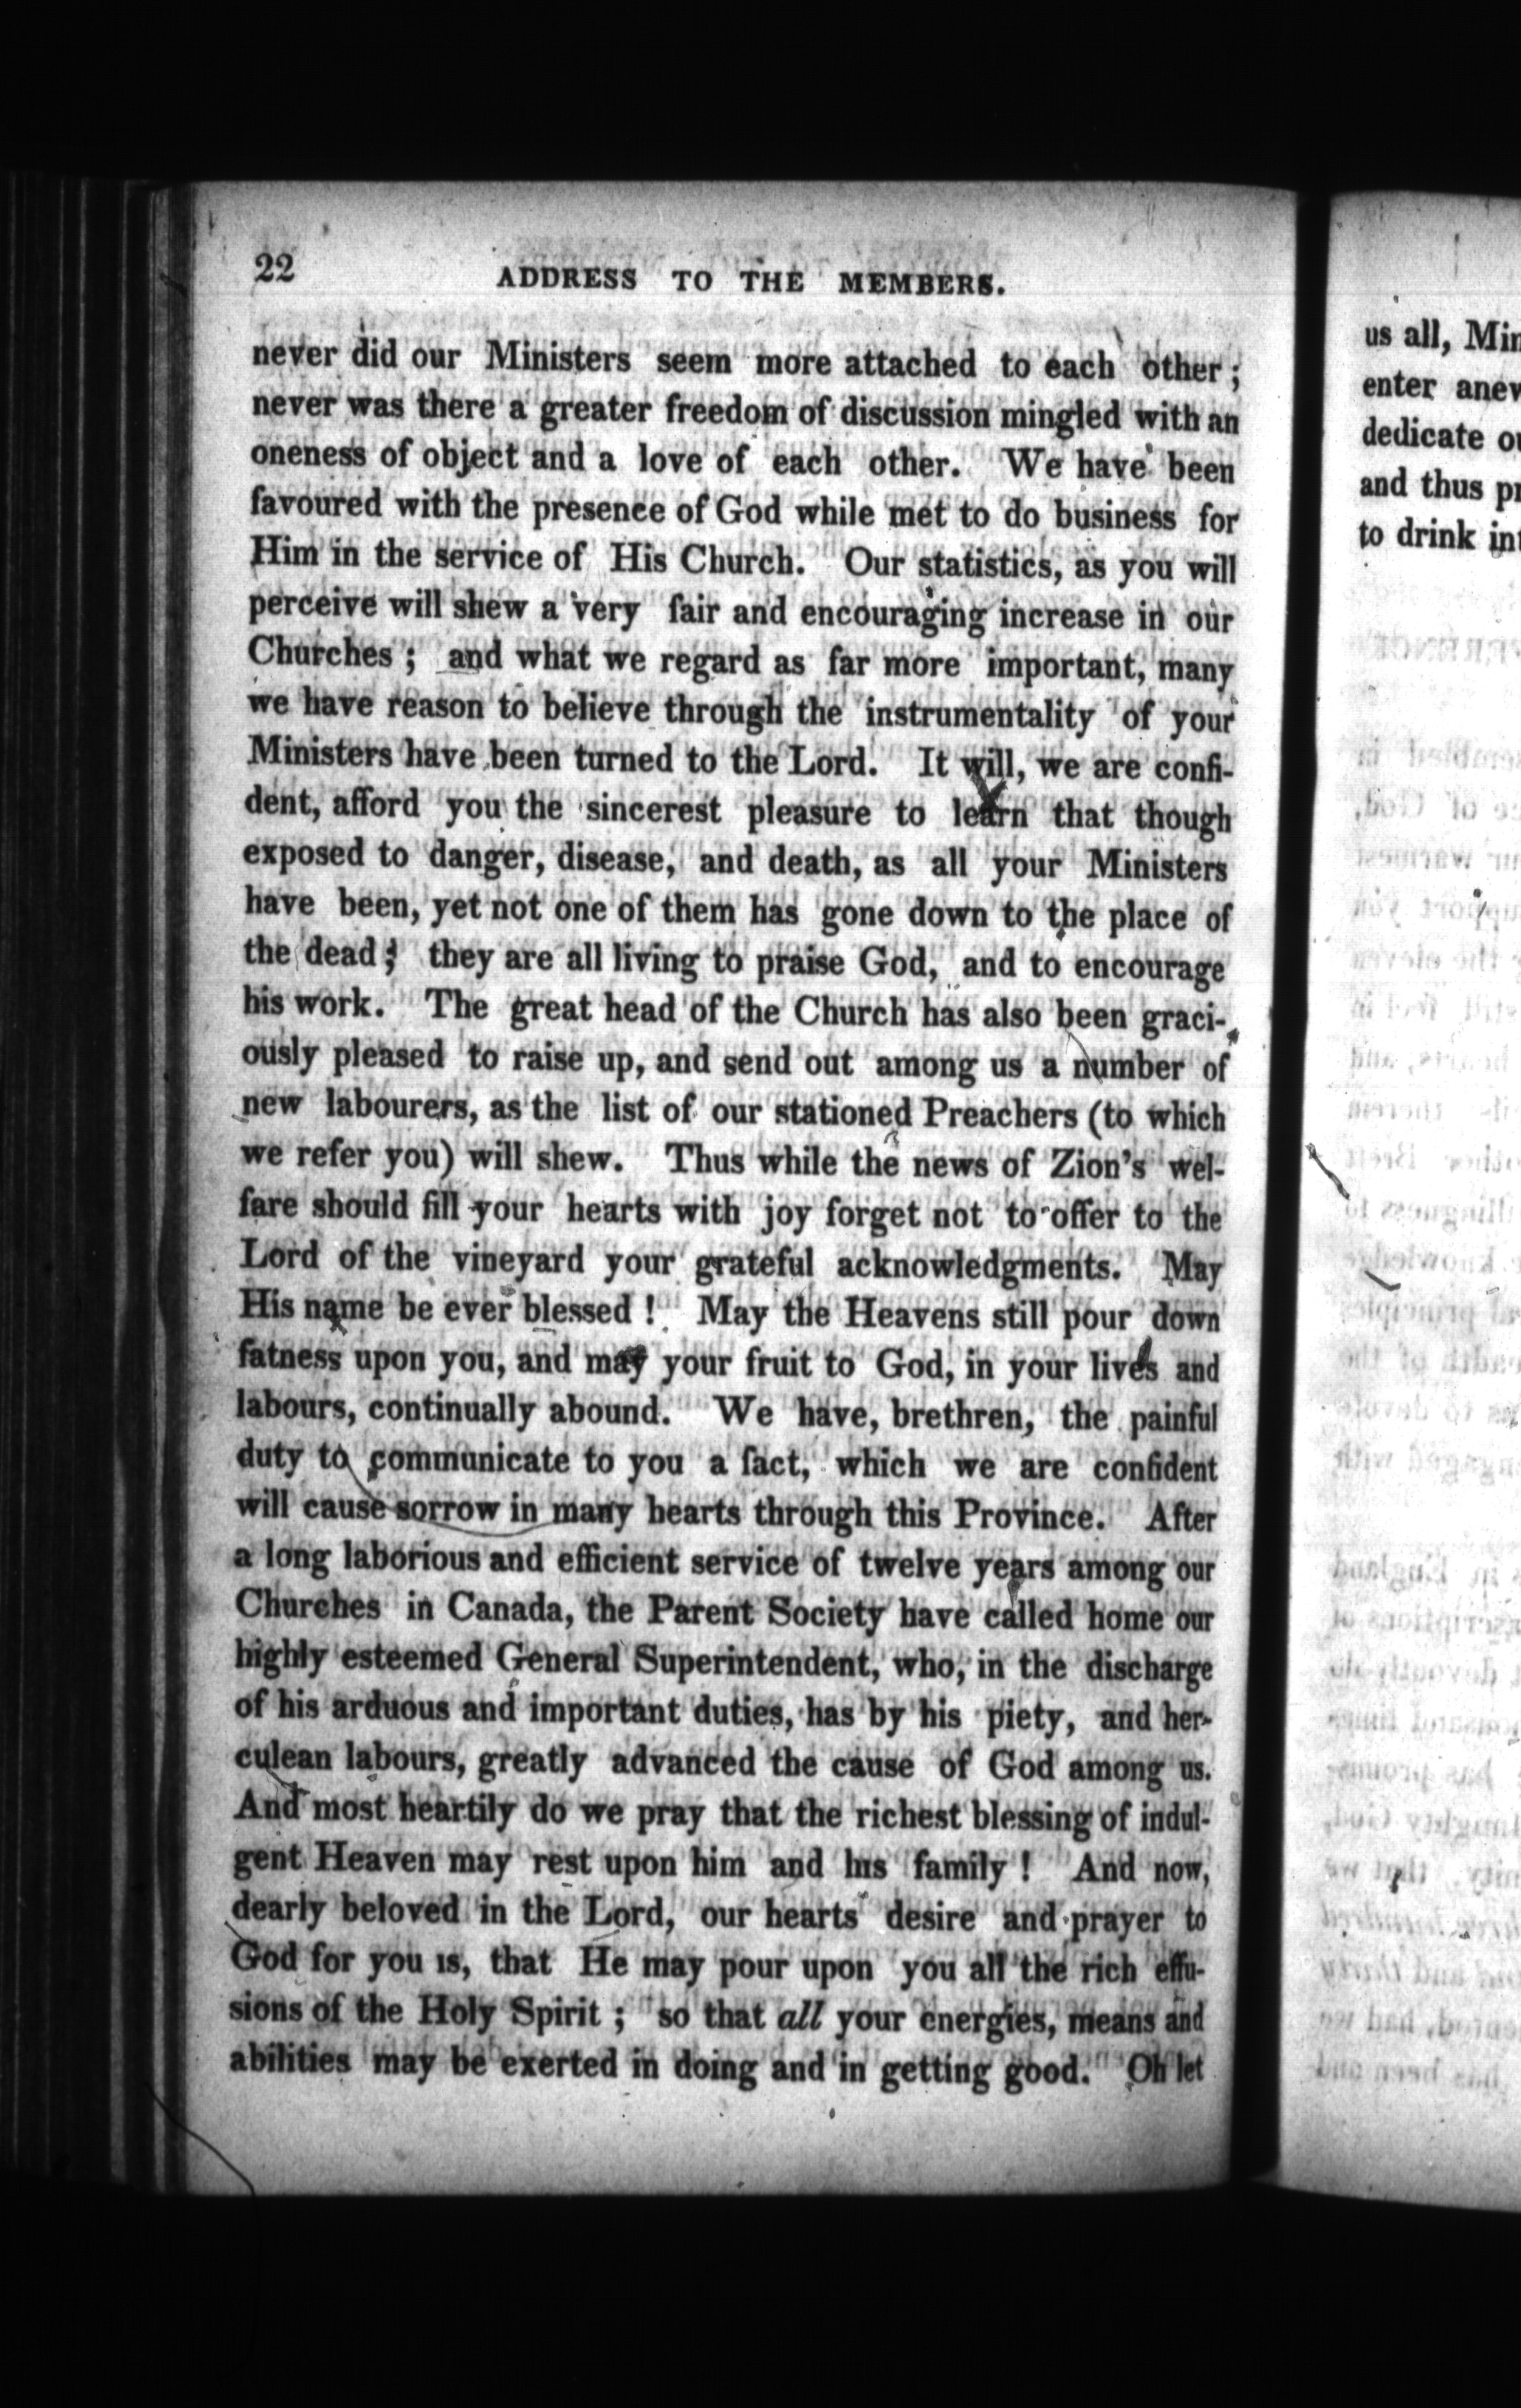 22
ADDRESS TO THE MEMBERS.
never did our Ministers seem more attached to each other ;
never was there a greater freedom of discussion mingled with an
oneness of object and a love of each other. We have been
favoured with the presence of God while met to do business for
Him in the service of His Church. Our statistics, as you will
perceive will shew a very fair and encouraging increase in our
Churches ; and what we regard as far more important, many
we have reason to believe through the instrumentality of your
Ministers have been turned to the Lord. It will, we are confi-
dent, afford you the sincerest pleasure to learn that though
exposed to danger, disease, and death, as all your Ministers
have been, yet not one of them has gone down to the place of
the dead ; they are all living to praise God, and to encourage
his work. The great head of the Church has also been graci-
ously pleased to raise up, and send out among us a number of
new labourers, as the list of our stationed Preachers (to which
we refer you) will shew. Thus while the news of Zion's wel-
fare should fill your hearts with joy forget not to offer to the
Lord of the vineyard your grateful acknowledgments. May
His name be ever blessed ! May the Heavens still pour down
fatness upon you, and may your fruit to God, in your lives and
labours, continually abound. We have, brethren, the painful
duty to communicate to you a fact, which we are confident
will cause sorrow in many hearts through this Province. After
a long laborious and efficient service of twelve years among our
Churches in Canada, the Parent Society have called home our
highly esteemed General Superintendent, who, in the discharge
of his arduous and important duties, has by his piety, and her-
culean labours, greatly advanced the cause of God among us.
And most heartily do we pray that the richest blessing of indul-
gent Heaven may rest upon him and his family ! And now,
dearly beloved in the Lord, our hearts desire and prayer to
God for you is, that He may pour upon you all the rich effu-
sions of the Holy Spirit ; so that all your energies, means and
abilities may be exerted in doing and in getting good. Oh let
us all, Min
enter anew
dedicate ou
and thus pr
to drink int